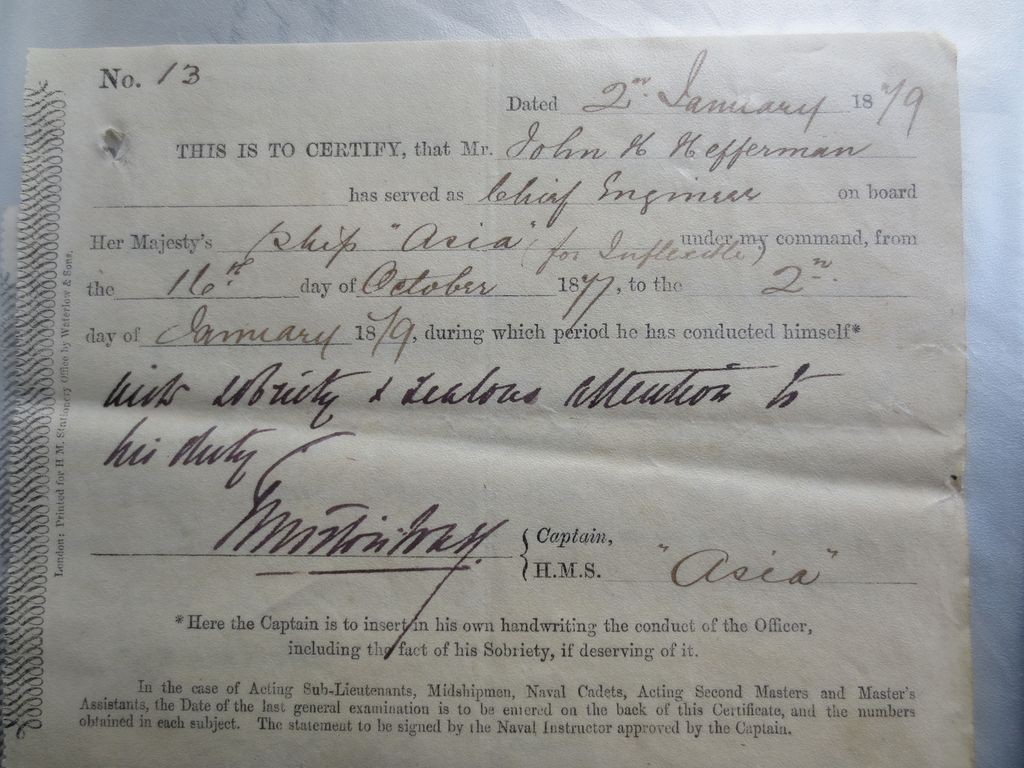 No. 13
Dated 2nd January 1879
THIS IS TO CERTIFY, that Mr. John H Hefferman
has served as Chief Engineer on board
Her Majesty's Ship "Asia" (for Inflexible) under my command, from
the 16th day of October 1877, to the 2nd
day of January 1879, during which period he has conducted himself*
with sobriety & zealous attention to
his duty
Captain,
H.M.S. "Asia"
*Here the Captain is to insert in his own handwriting the conduct of the Officer,
including the fact of his Sobriety, if deserving of it.
In the case of Acting Sub-Lieutenants, Midshipmen, Naval Cadets, Acting Second Masters and Master's
Assistants, the Date of the last general examination is to be entered on the back of this Certificate, and the numbers
obtained in each subject. The statement to be signed by the Naval Instructor approved by the Captain.
London: Printed for H.M. Stationery Office by Waterlow & Sons.